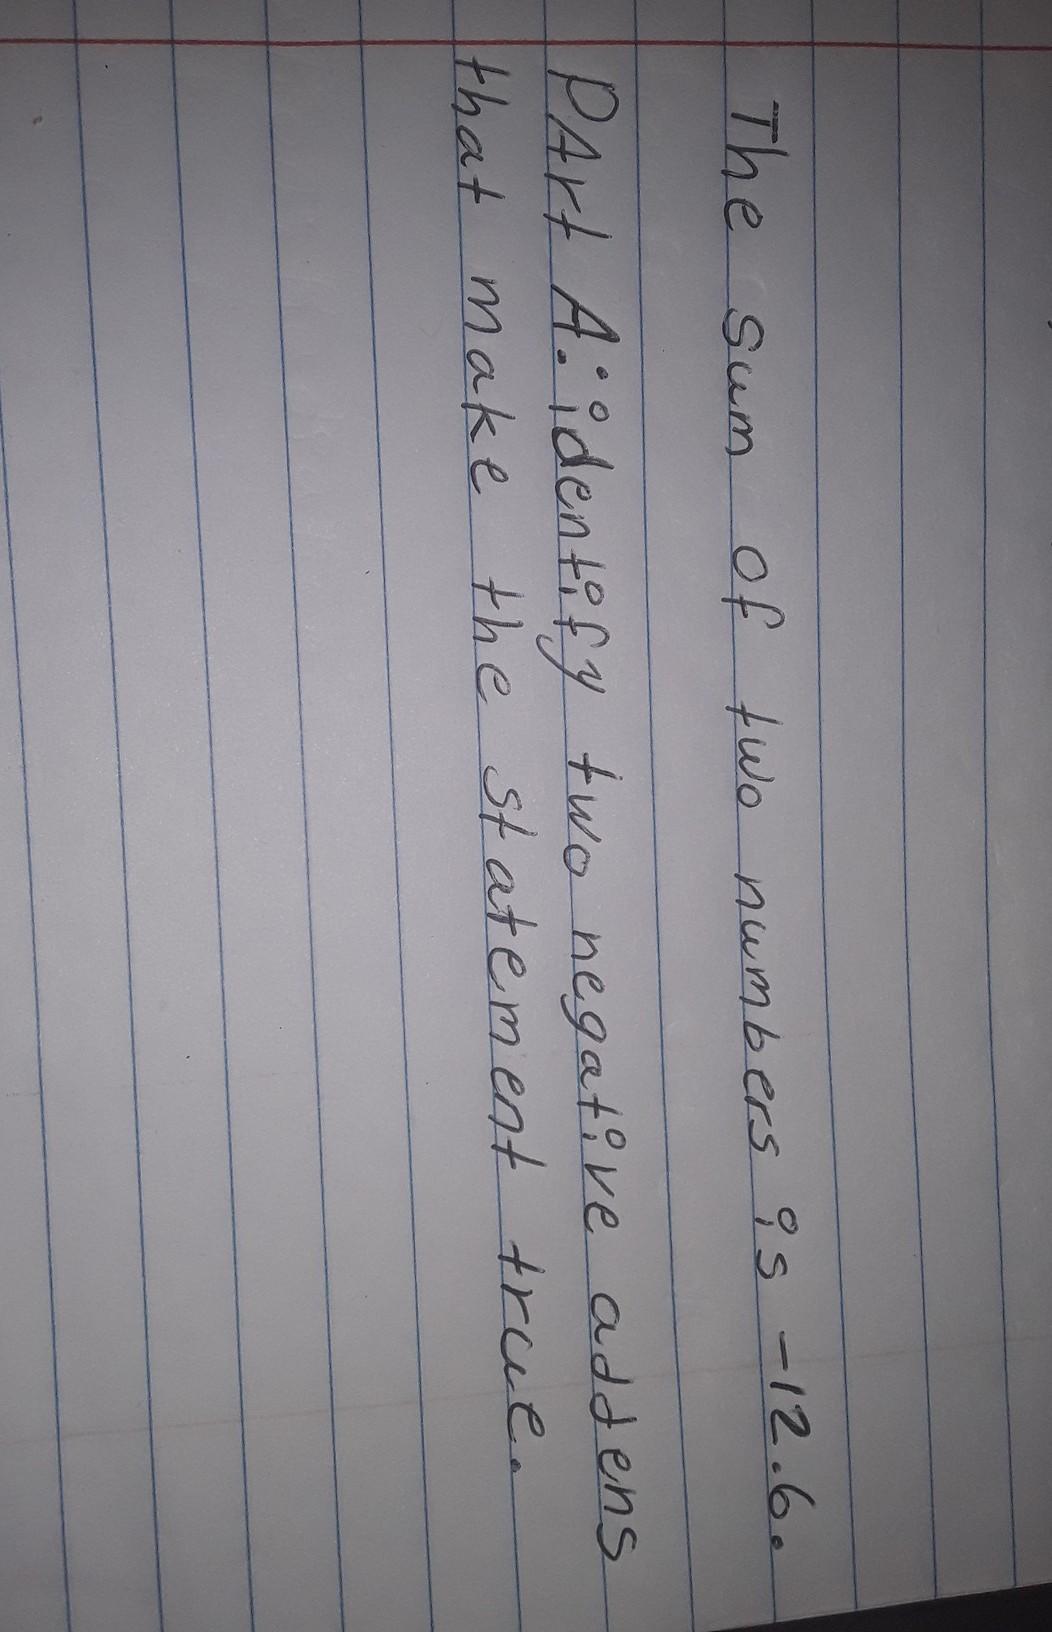 The sum of two numbers is -12.6.
PArt A: identify two negative addens
that make the statement true.